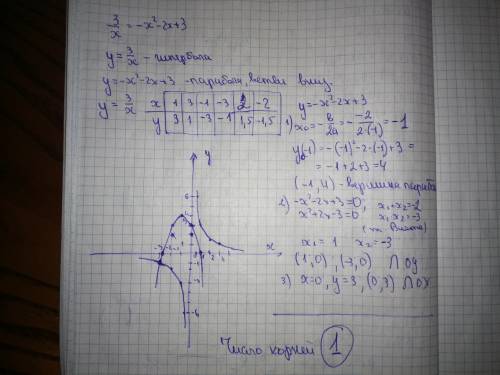 3/x = -x²-2x+3
y = 3/x - гипербола
y = -x²-2x+3 - парабола, ветви вниз.
y = 3/x
x | 1 | 3 | -1 | -3 | 2 | -2
y | 3 | 1 | -3 | -1 | 1,5 | -1,5
y = -x²-2x+3
1) x₀ = -в/2a = -(-2)/(2·(-1)) = -1
y(-1) = -(-1)²-2·(-1)+3 =
= -1+2+3 = 4
(-1, 4) - вершина параб
2) -x²-2x+3=0; x₁+x₂=-2
x²+2x-3=0 x₁x₂=-3
(т. Виета)
x₁ = 1 x₂ = -3
(1,0), (-3,0) ∩ оу
3) x=0, y=3, (0,3) ∩ ох
y
x
6
-3
-6
Число корней 1